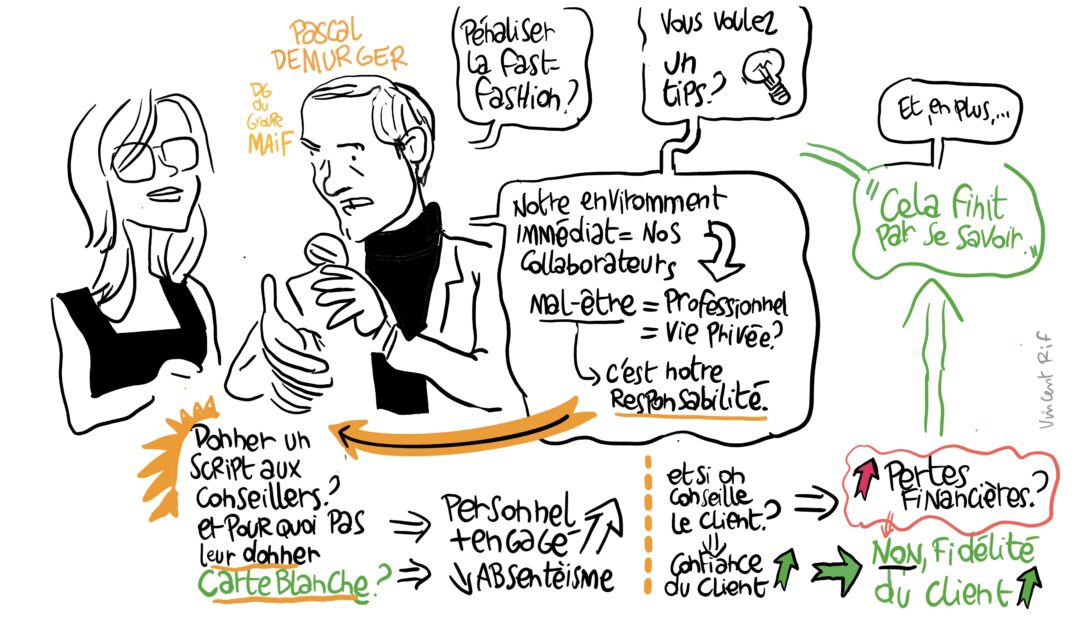 Pascal
DEMURGER
DG
du
Groupe
MAIF
Pénaliser
la fast-
fashion?
Vous voulez
un
tips?
Et, en plus,...
"Cela finit
par se savoir."
Notre enviromment
immédiat = Nos
collaborateurs
Mal-être = Professionnel
= Vie Privée?
c'est notre
Responsabilité.
Vincent Rif
Donner un
script aux
conseillers?
et pourquoi pas
leur donner
Carte Blanche?
Personnel
+ engagé
Absentéisme
et si on
conseille
le client?
Confiance
du client
Pertes
Financières?
Non, Fidélité
du client